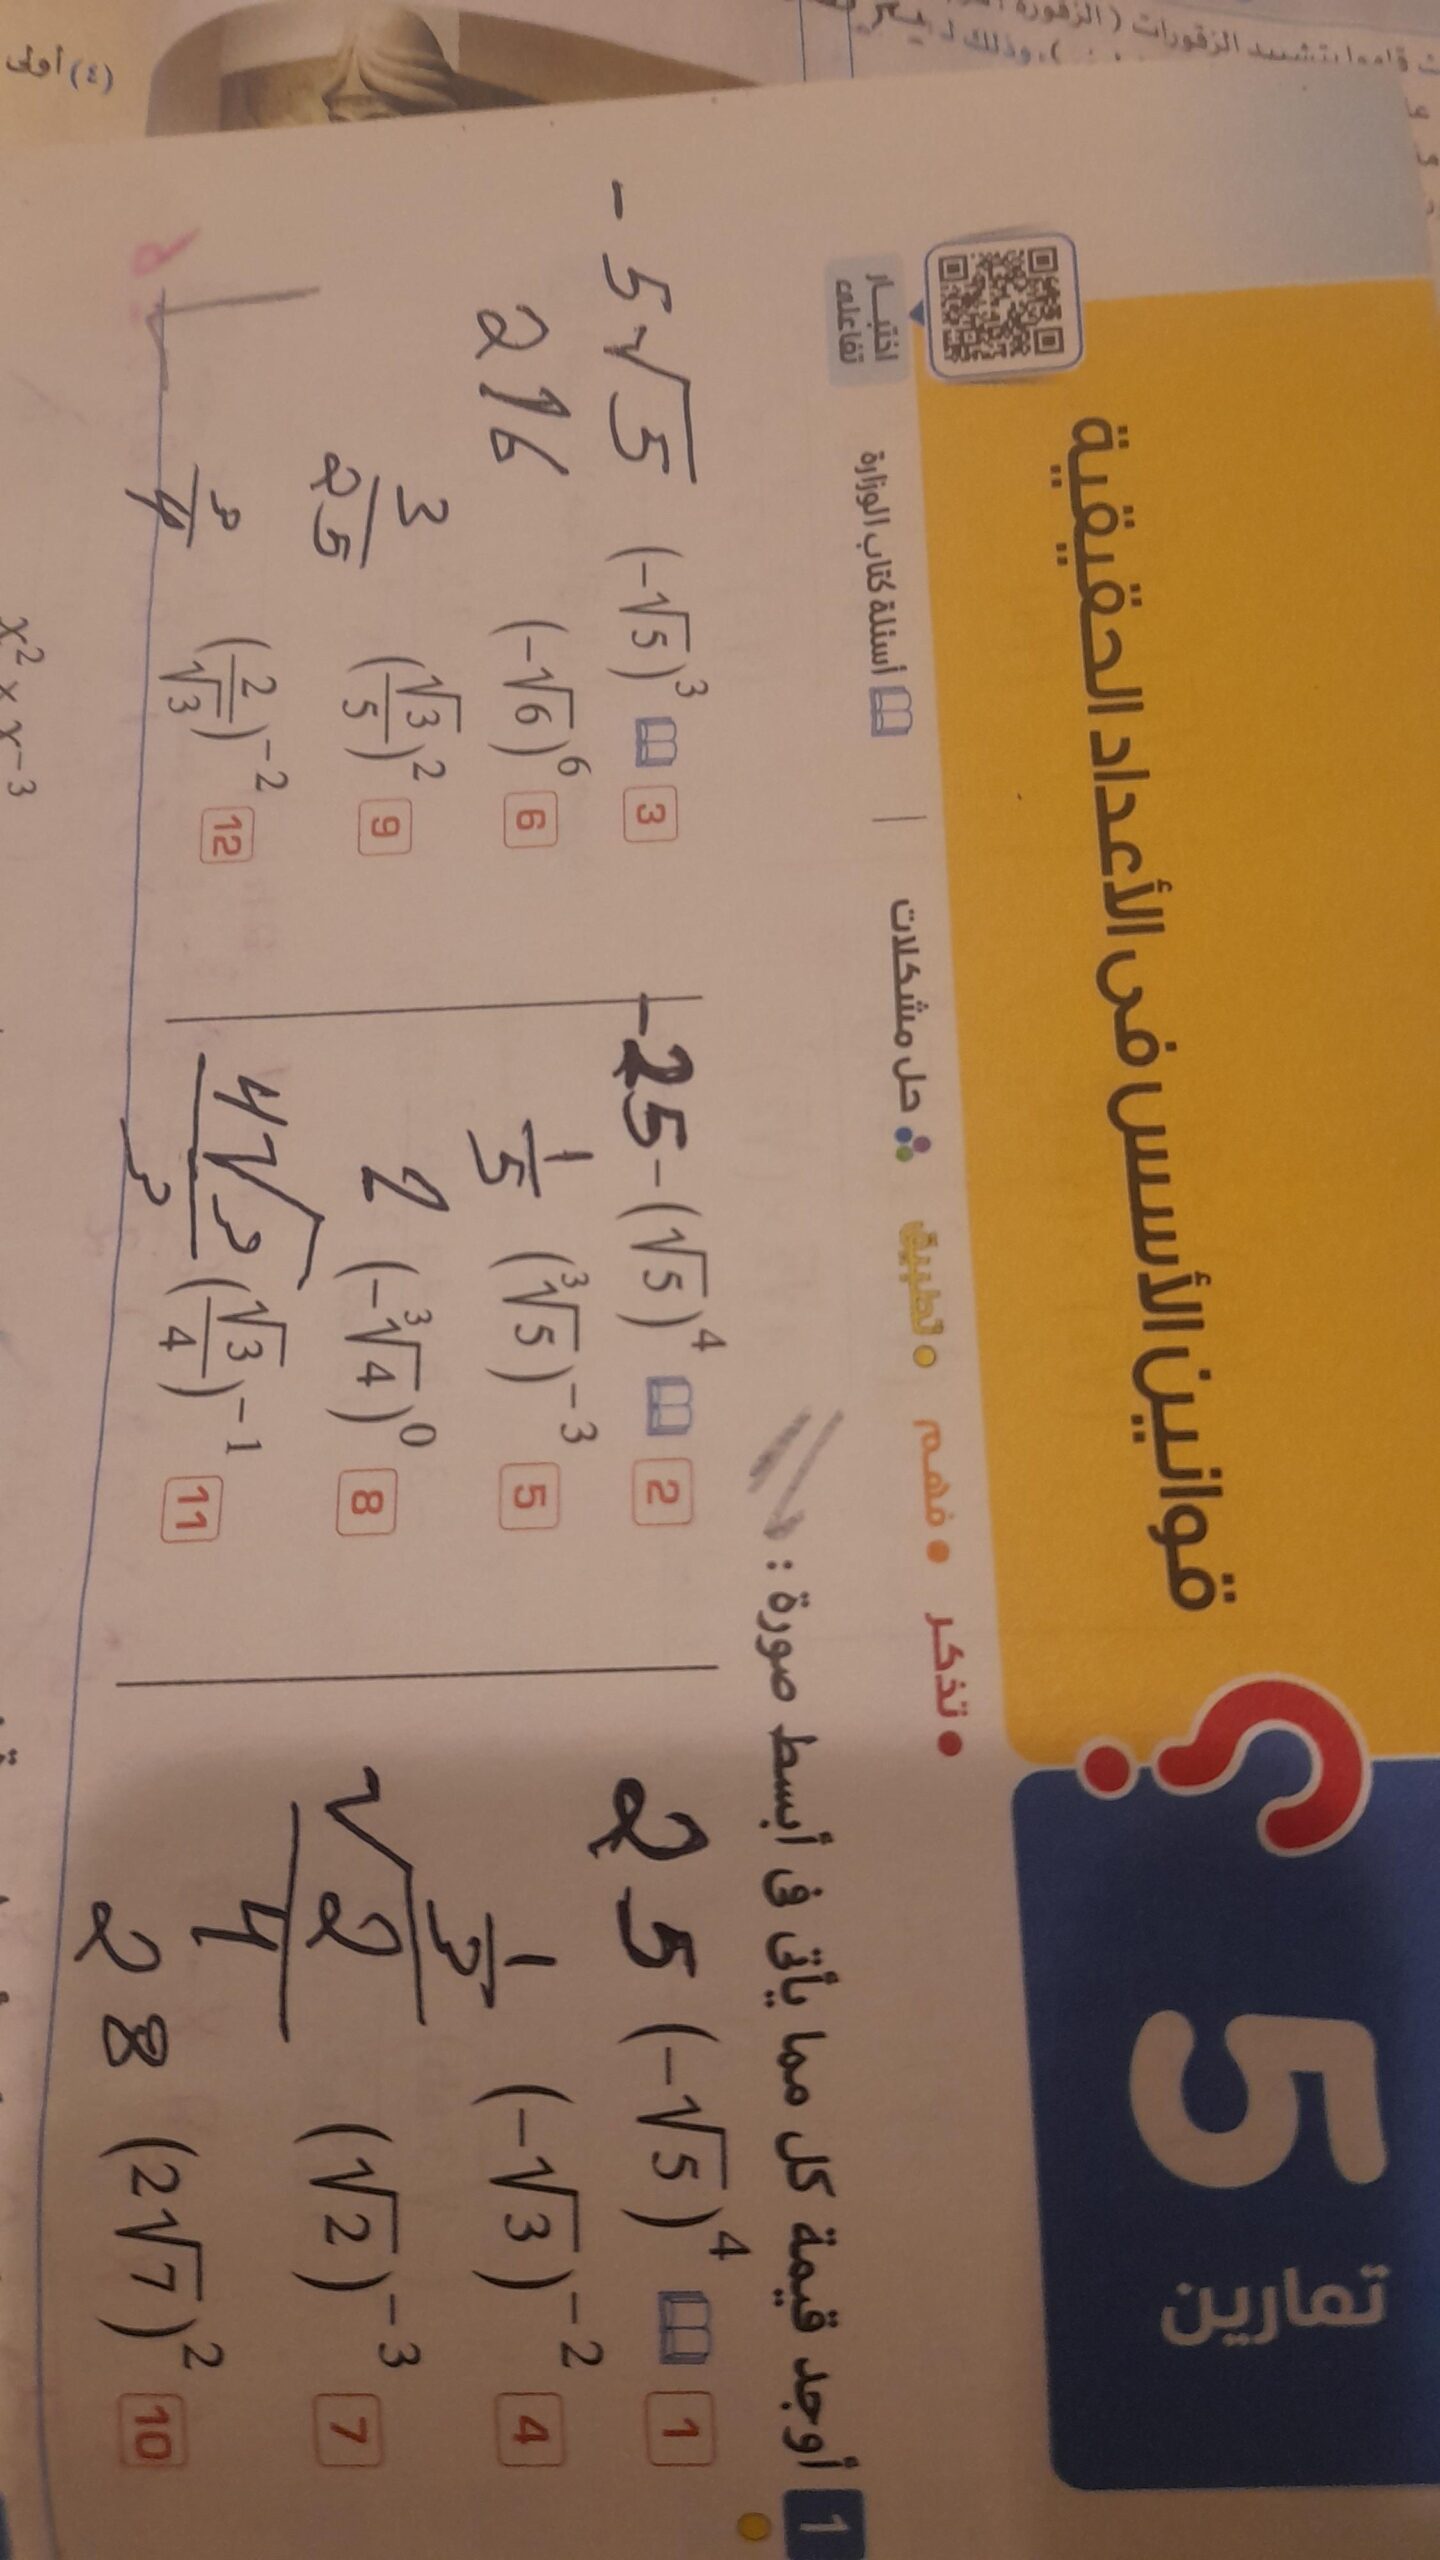 (٤) أولى
تمارين 5
قوانين الأسس فى الأعداد الحقيقية
اختبـار
تفاعلى
• تذكر • فهم • تطبيق حل مشكلات | أسئلة كتاب الوزارة
1 أوجد قيمة كل مما يأتى فى أبسط صورة :
1 (-√5)^4 25 2 -(√5)^4 -25 3 (-√5)^3 -5√5
4 (-√3)^-2 1/3 5 (∛5)^-3 1/5 6 (-√6)^6 216
7 (√2)^-3 √2/4 8 (-∛4)^0 1 9 (√3/5)^2 3/25
10 (2√7)^2 28 11 (√3/4)^-1 4√3/3 12 (2/√3)^-2 3/4
x^2 × x^-3